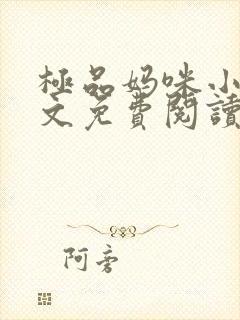 極品妈咪小
文免費閱讀
阿旁